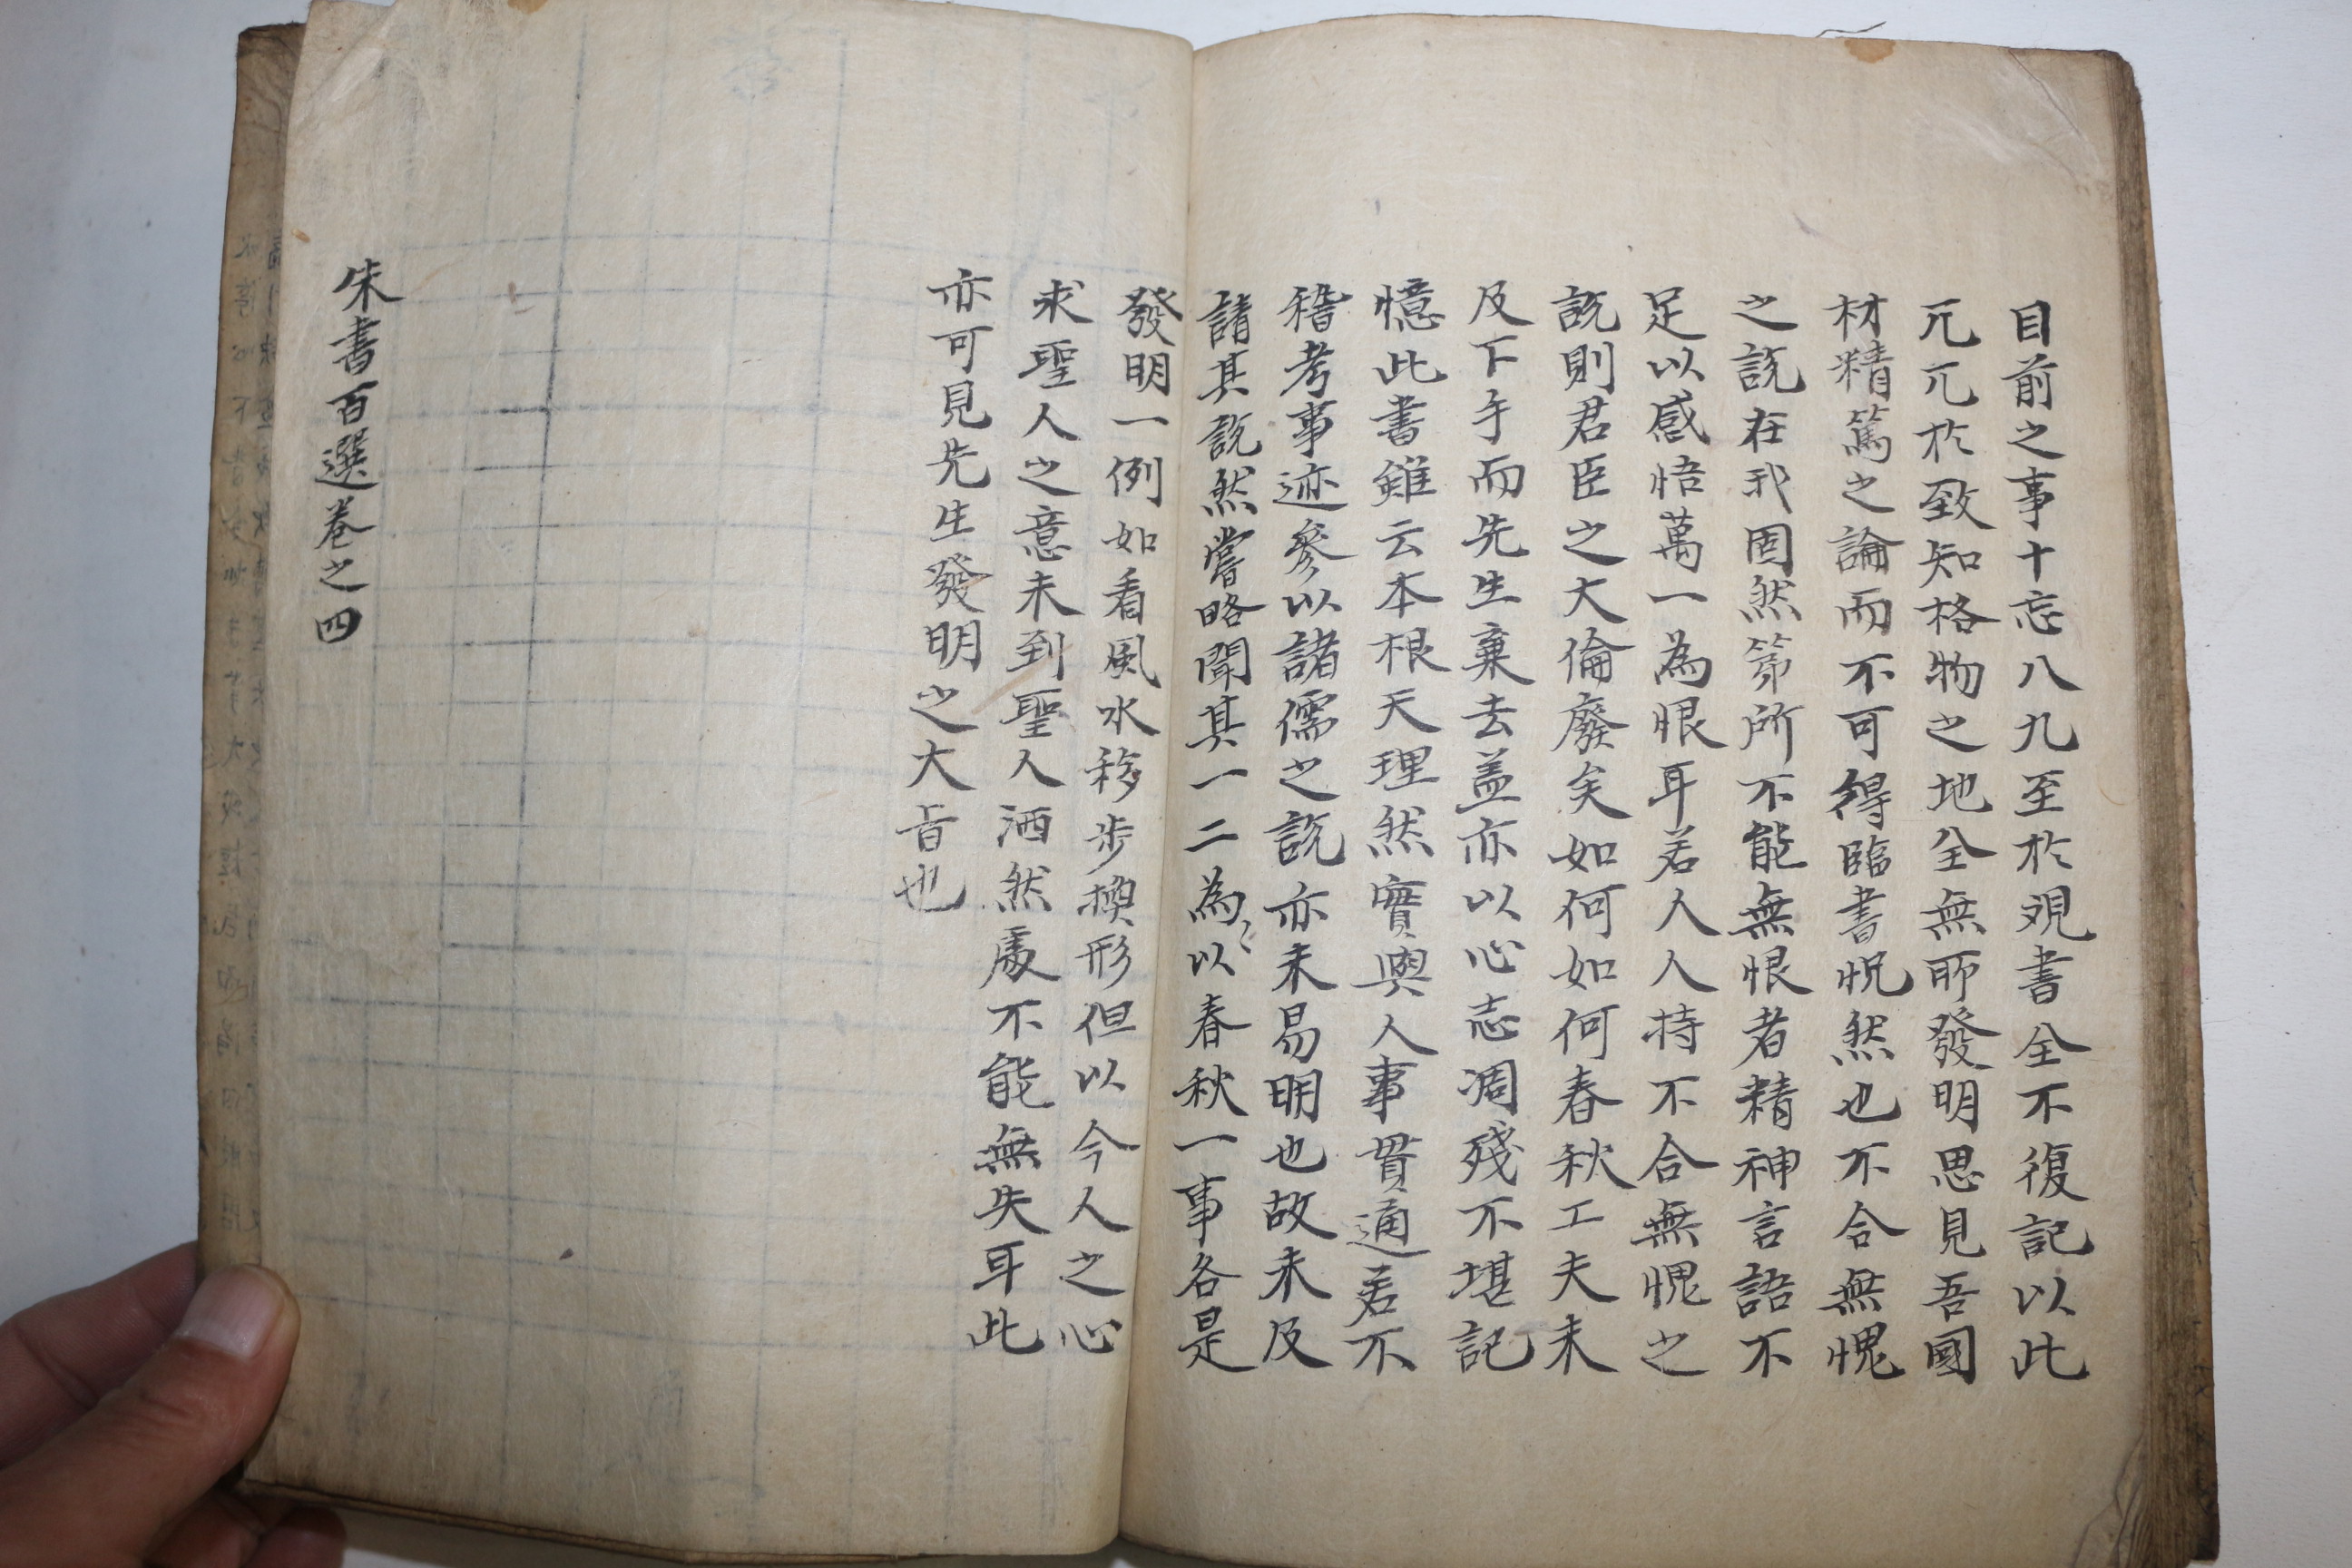 目前之事十忘八九至於覌書全不復記以此
兀兀於致知格物之地全無所發明思見吾國
材精篤之論而不可得臨書怳然也不合無愧
之說在我固然第所不能無恨者精神言語不
足以感悟萬一為恨耳若人人持不合無愧之
說則君臣之大倫廢矣如何如何春秋工夫未
及下手而先生棄去盖亦以心志凋殘不堪記
憶此書雖云本根天理然實與人事貫通若不
稽考事迹參以諸儒之說亦未易明也故未及
請其說然嘗略聞其一二為以春秋一事各是
發明一例如看風水移步換形但以今人之心
求聖人之意未到聖人洒然處不能無失耳此
亦可見先生發明之大旨也
朱書百選卷之四